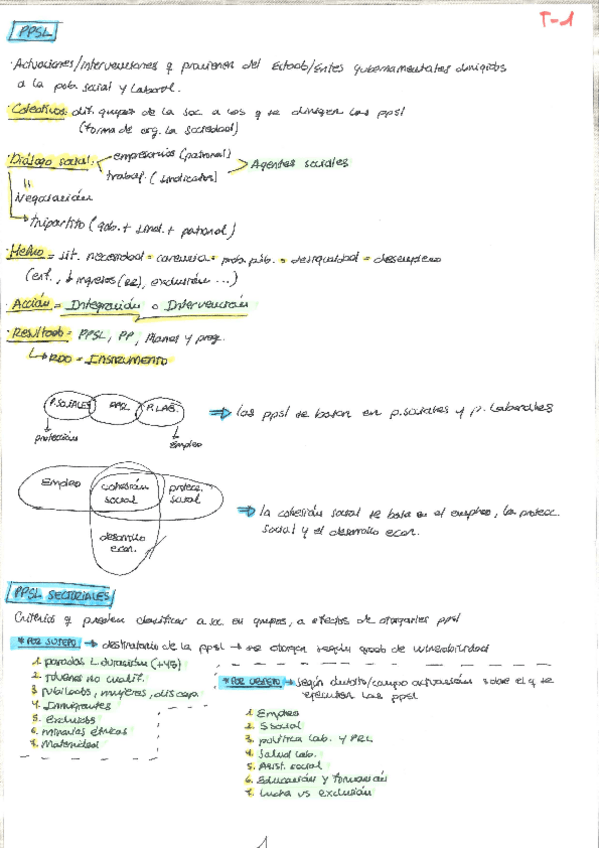 T-1
PPSL
· Actuaciones/intervenciones q provienen del Estado/Entes gubernamentales dirigidos
a la pob. social y laboral.
· Colectivos: dif. grupos de la soc a los q se dirigen las ppsl
(forma de org. la sociedad)
· Diálogo social: empresarios (patronal)
trabaj. (sindicatos)
Agentes sociales
Negociación
tripartito (gob. + sind. + patronal)
· Hecho = sit. necesidad = carencia = prob. púb. = desigualdad = desempleo
(ext., ↓ ingresos (RE), exclusión ...)
· Acción = Integración o Intervención
· Resultado = PPSL, PP, planes y prog.
RDO = INSTRUMENTO
P.SOCIALES PPSL P.LAB.
protección
empleo
⇒ las ppsl se basan en p.sociales y p. laborales
Empleo
cohesión social
protecc. social
desarrollo econ.
⇒ la cohesión social se basa en el empleo, la protecc.
social y el desarrollo econ.
PPSL SECTORIALES
Criterios q pueden clasificar a soc en grupos, a efectos de otorgarles ppsl
* POR SUJETO → destinatario de la ppsl → se otorgan según grado de vulnerabilidad
1. parados L duración (+45)
2. Jóvenes no cualif.
3. Jubilados, mujeres, discap.
4. Inmigrantes
5. excluidos
6. minorías étnicas
7. Maternidad
* POR OBJETO → según ámbito/campo actuación sobre el q se
ejecutan las ppsl
1. Empleo
2. S social
3. política lab. y PRL
4. Salud lab.
5. Asist. social
6. Educación y formación
7. Lucha vs exclusión
1